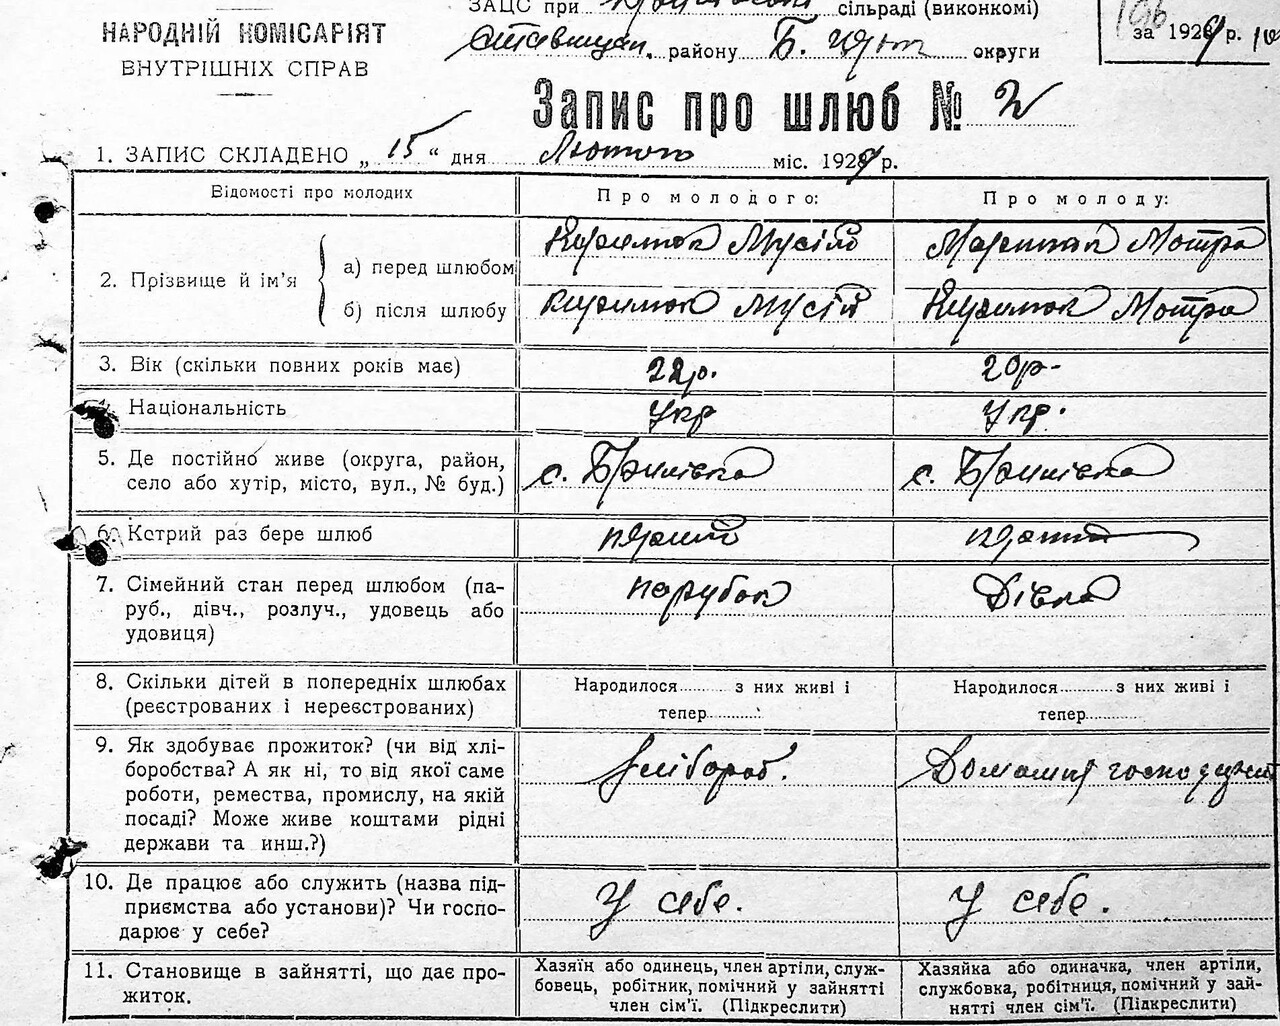 ЗАЦС при сільраді (виконкомі)
НАРОДНІЙ КОМІСАРІЯТ
ВНУТРІШНІХ СПРАВ
району Б. Церк округи
за 1929 р.
Запис про шлюб № 2
1. ЗАПИС СКЛАДЕНО „ 15 “ дня Лютого міс. 1929 р.
Відомості про молодих Про молодого: Про молоду:
2. Прізвище й ім’я
а) перед шлюбом Мусій Мотра
б) після шлюбу Мусій Мотра
3. Вік (скільки повних років має) 22 р. 20 р.
4. Національність Укр Укр.
5. Де постійно живе (округа, район,
село або хутір, місто, вул., № буд.) с. с.
6. Котрий раз бере шлюб
7. Сімейний стан перед шлюбом (па-
руб., дівч., розлуч., удовець або
удовиця) парубок Дівка
8. Скільки дітей в попередніх шлюбах
(реєстрованих і нереєстрованих)
Народилося з них живі і
тепер
Народилося з них живі і
тепер
9. Як здобуває прожиток? (чи від хлі-
боробства? А як ні, то від якої саме
роботи, ремества, промислу, на якій
посаді? Може живе коштами рідні
держави та инш.?)
Хлібороб. Домашня
10. Де працює або служить (назва під-
приємства або установи)? Чи госпо-
дарює у себе?
У себе. У себе.
11. Становище в зайнятті, що дає про-
житок.
Хазяїн або одинець, член артіли, служ-
бовець, робітник, помічний у зайнятті
член сім’ї. (Підкреслити)
Хазяйка або одиначка, член артіли,
службовка, робітниця, помічний у зай-
нятті член сім’ї. (Підкреслити)